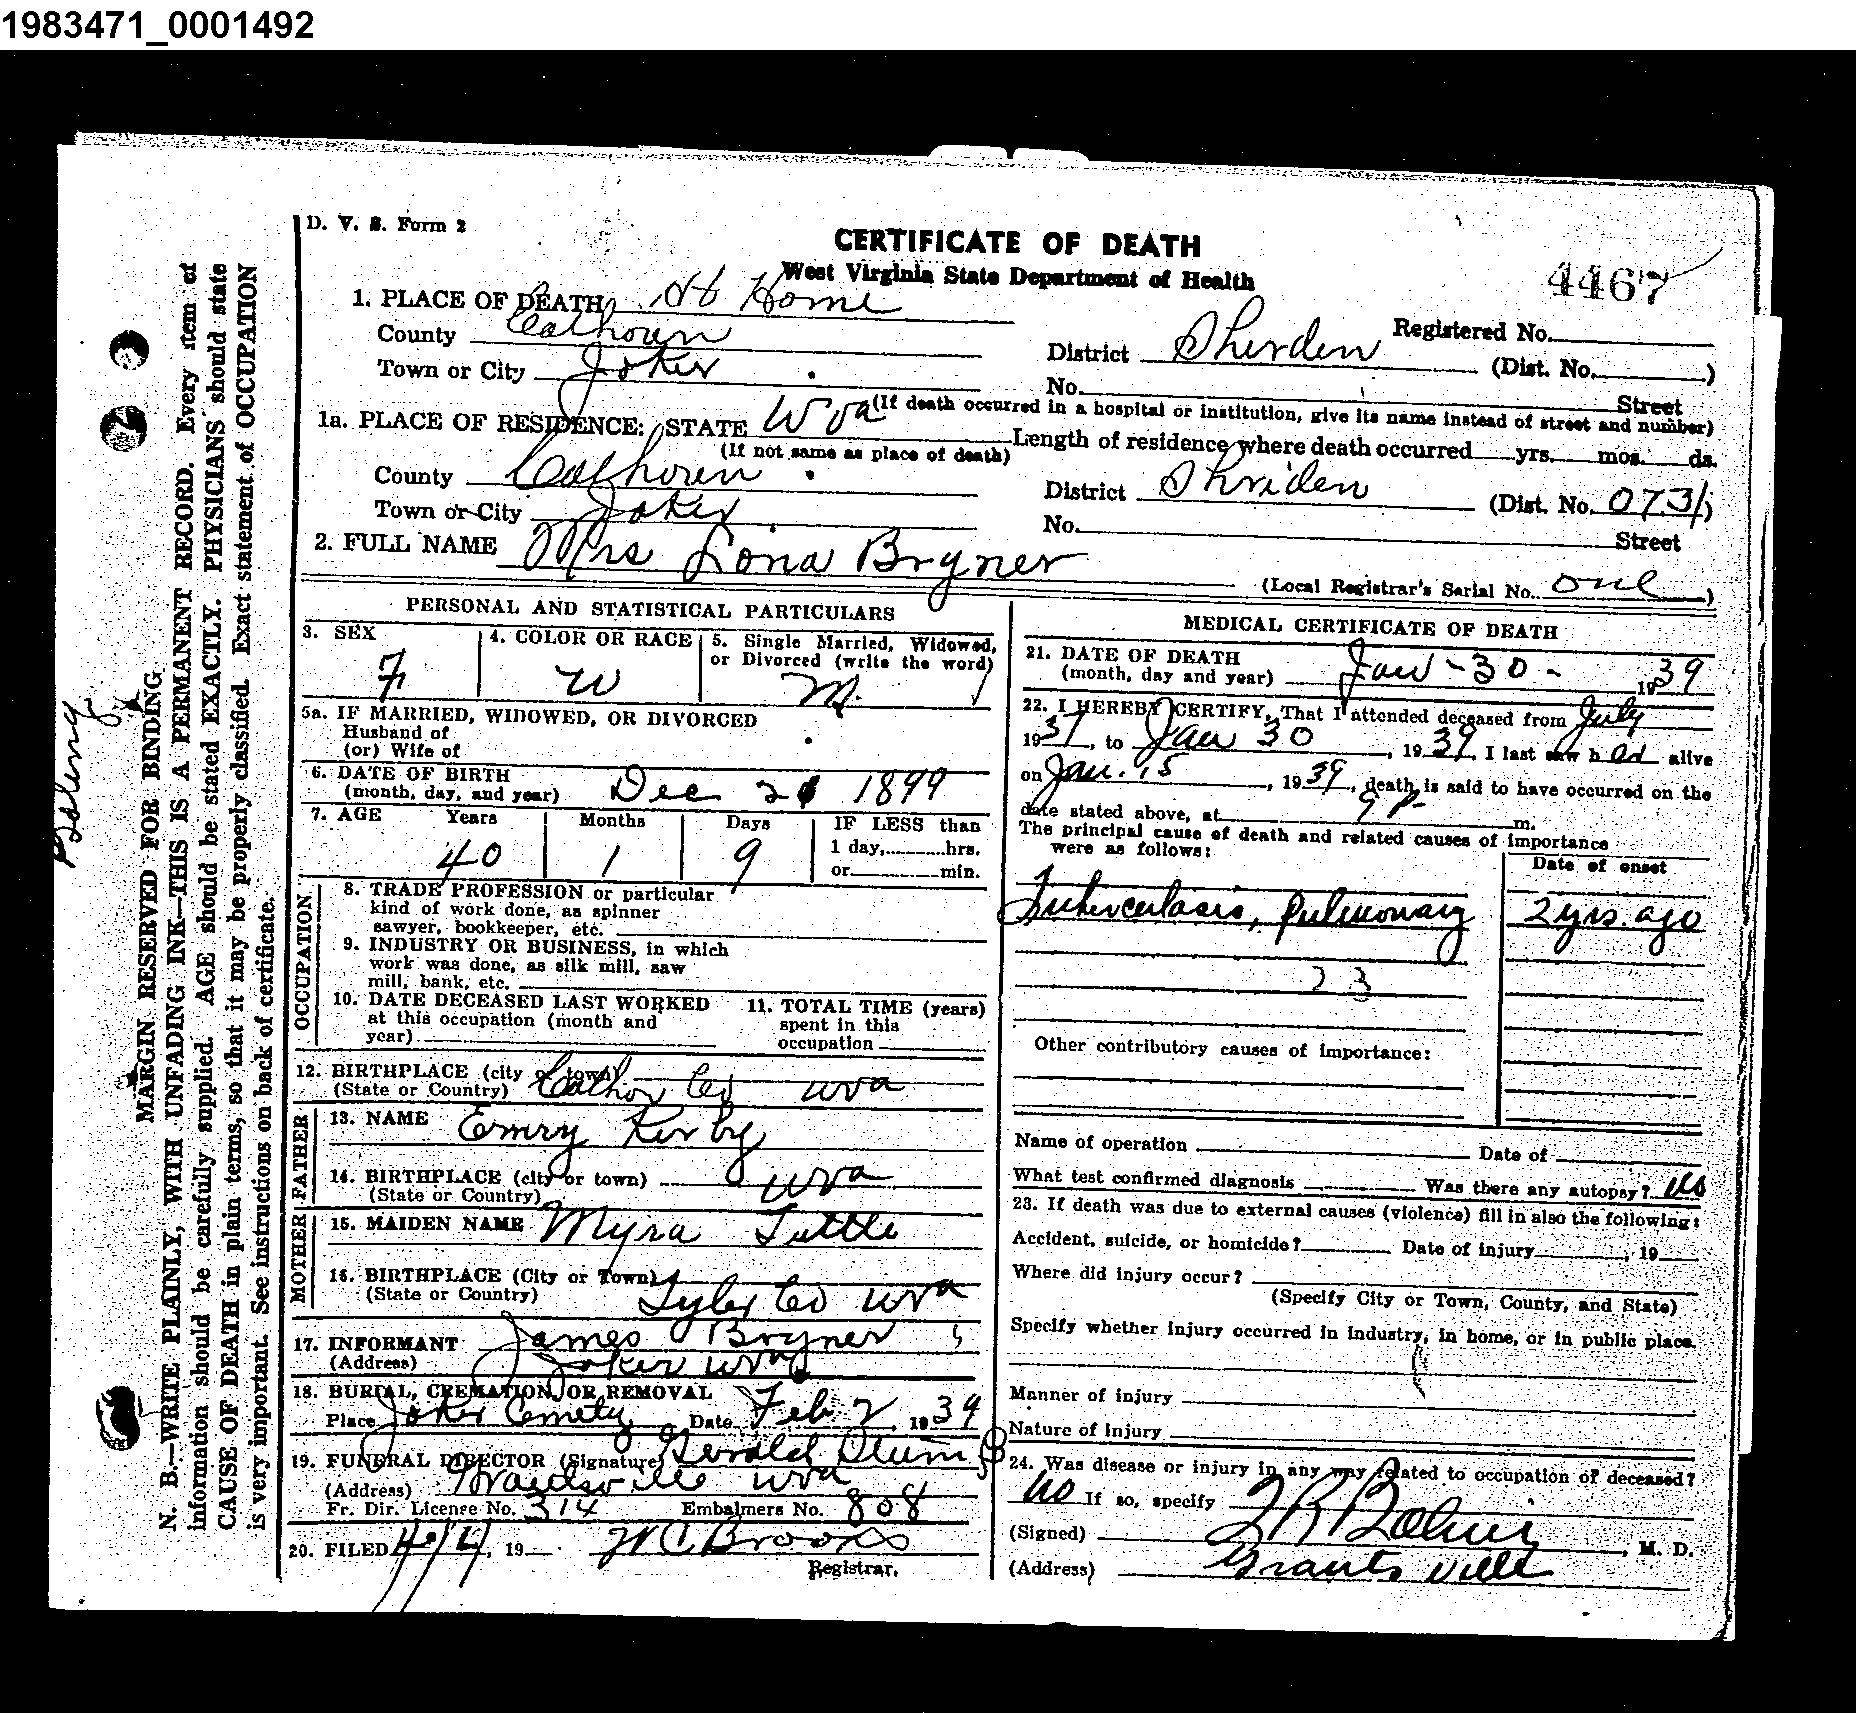 1983471_0001492
D. V. S. Form 2
CERTIFICATE OF DEATH
West Virginia State Department of Health
4467
1. PLACE OF DEATH At Home
County Calhoun
Town or City Joker
Registered No.
District Sherden (Dist. No. )
No. Street
(If death occurred in a hospital or institution, give its name instead of street and number)
1a. PLACE OF RESIDENCE: STATE W va
(If not same as place of death)
Length of residence where death occurred yrs. mos. ds.
County Calhoun
District Shriden (Dist. No. 0731)
Town or City Joker
No. Street
2. FULL NAME Mrs Lona Bryner
(Local Registrar's Serial No. one )
PERSONAL AND STATISTICAL PARTICULARS
3. SEX
F
4. COLOR OR RACE
W
5. Single Married, Widowed,
or Divorced (write the word)
M.
5a. IF MARRIED, WIDOWED, OR DIVORCED
Husband of
(or) Wife of
6. DATE OF BIRTH
(month, day, and year) Dec 21 1899
7. AGE Years Months Days
40 1 9
IF LESS than
1 day, hrs.
or min.
OCCUPATION
8. TRADE PROFESSION or particular
kind of work done, as spinner
sawyer, bookkeeper, etc.
9. INDUSTRY OR BUSINESS, in which
work was done, as silk mill, saw
mill, bank, etc.
10. DATE DECEASED LAST WORKED
at this occupation (month and
year)
11. TOTAL TIME (years)
spent in this
occupation
12. BIRTHPLACE (city or town)
(State or Country) Calhon Co wva
FATHER
13. NAME Emry Kirby
14. BIRTHPLACE (city or town)
(State or Country) wva
MOTHER
15. MAIDEN NAME Myra Tuttle
16. BIRTHPLACE (City or Town)
(State or Country) Tyler Co wva
17. INFORMANT James Bryner
(Address) Joker wva
18. BURIAL, CREMATION, OR REMOVAL
Place Joker Cemety Date Feb 2 1939
19. FUNERAL DIRECTOR (Signature) Gerald Stump
(Address) Grantsville wva
Fr. Dir. License No. 314 Embalmers No. 808
20. FILED 4/4, 19 W C Brooks
Registrar.
MEDICAL CERTIFICATE OF DEATH
21. DATE OF DEATH
(month, day and year) Jan - 30 - 1939
22. I HEREBY CERTIFY, That I attended deceased from July
1937, to Jan 30, 1939, I last saw her alive
on Jan. 15, 1939, death is said to have occurred on the
date stated above, at 9 P m.
The principal cause of death and related causes of importance
were as follows:
Date of onset
Tuberculosis, Pulmonary 2 yrs. ago
23
Other contributory causes of importance:
Name of operation Date of
What test confirmed diagnosis Was there any autopsy? no
23. If death was due to external causes (violence) fill in also the following:
Accident, suicide, or homicide? Date of injury , 19
Where did injury occur?
(Specify City or Town, County, and State)
Specify whether injury occurred in industry, in home, or in public place.
Manner of injury
Nature of Injury
24. Was disease or injury in any way related to occupation of deceased?
no If so, specify
(Signed) , M. D.
(Address) Grantsville
MARGIN RESERVED FOR BINDING
N. B.—WRITE PLAINLY, WITH UNFADING INK—THIS IS A PERMANENT RECORD. Every item of
information should be carefully supplied. AGE should be stated EXACTLY. PHYSICIANS should state
CAUSE OF DEATH in plain terms, so that it may be properly classified. Exact statement of OCCUPATION
is very important. See instructions on back of certificate.